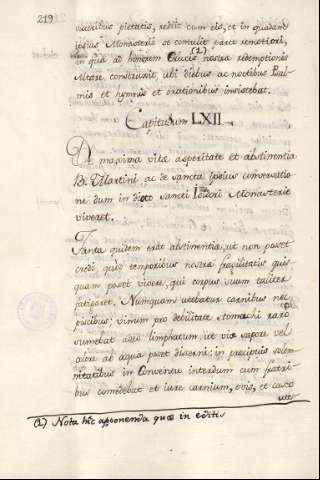 219
lacribus pietatis, rediit cum eis, et in quadam
ipsius Monasterii se contulit parte remotiori,
in qua ad honorem Crucis (1) nostræ redemptionis
Altare construxit, ubi diebus ac noctibus Psal-
mis et hymnis et orationibus insistebat.
Capitulum LXII.
De maxima vitæ asperitate et abstinentia
B. Martini, ac de sancta ipsius conversatio-
ne dum in dicto Sancti Isidori Monasterio
viveret.
Tanta quidem erat abstinentia, ut non posset
credi, quod temporibus nostræ fragilitatis quis-
quam posset vivere, qui corpus suum taliter
fatigaret. Numquam utebatur carnibus nec
piscibus; vinum pro debilitate stomachi raro
sumebat adeo limphatum, ut vix sapore vel
colore ab aqua posset discerni: in præcipuis solem-
nitatibus in Conventu interdum cum fratri-
bus comedebat et iure carnium, ovis, et caseo
ute-
(1) Nota hîc apponenda quæ in editis